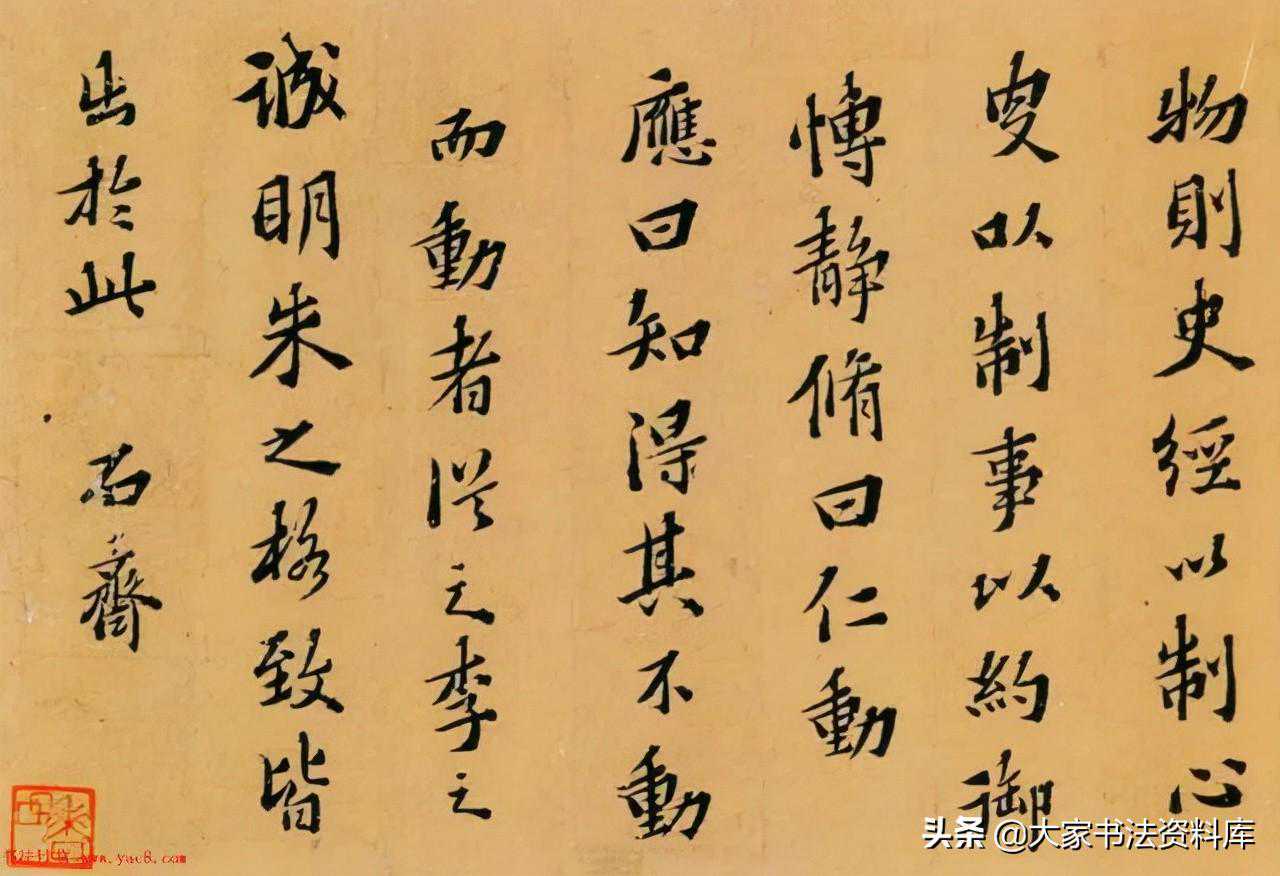 物則史經以制心
叟以制事以約御
慱静脩曰仁動
應曰知得其不動
而動者従之李之
誠明朱之格致皆
出於此
齋
头条 @大家书法资料库
www.yac8.com